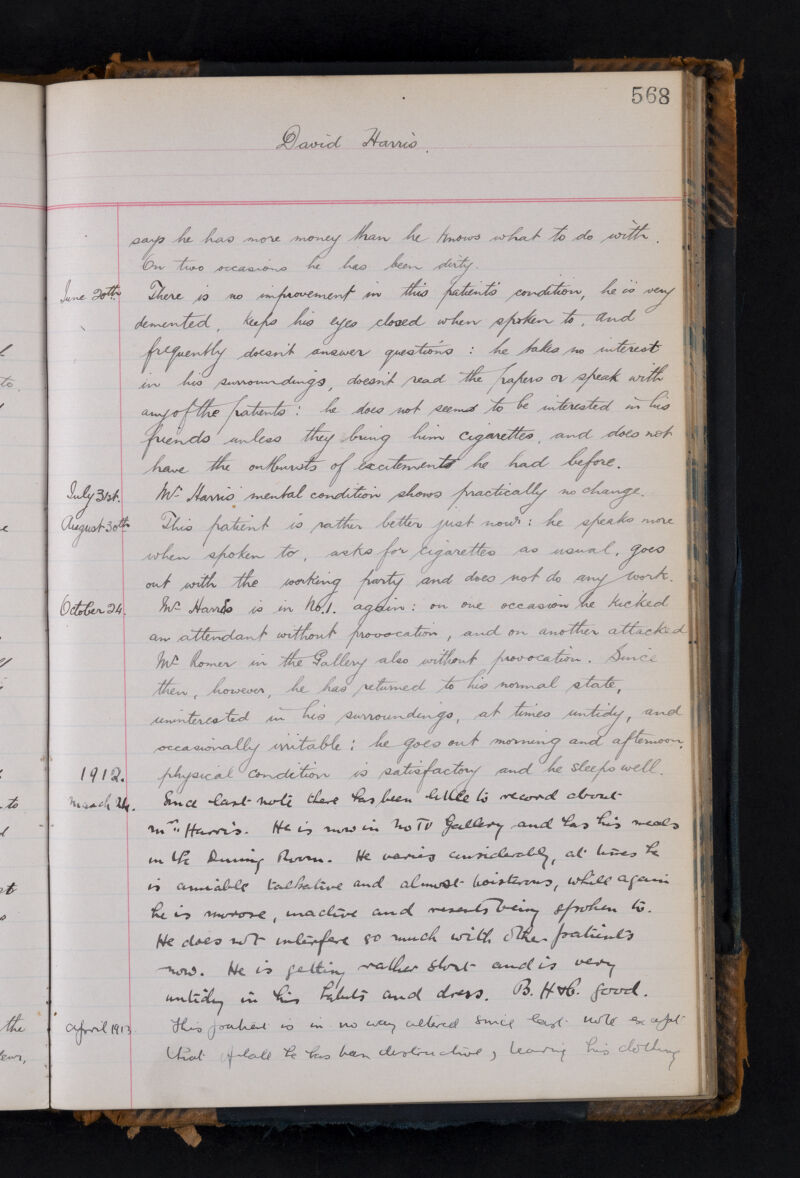 568
David Harris.
says he has more money than he knows what to do with.
On two occasions he has been dirty.
June 20th. There is no improvement in this patient's condition, he is very
demented, keeps his eyes closed when spoken to, and
frequently doesn't answer questions: he takes no interest
in his surroundings, doesn't read the papers or speak with
any of the patients: he does not seem to be interested in his
friends unless they bring him cigarettes, and does not
have the outbursts of excitement he had before.
July 31st. Mr Harris' mental condition shows practically no change.
August 30th This patient is rather better just now: he speaks more
when spoken to, asks for cigarettes as usual, goes
out with the working party and does not do any work.
October 24. Mr Harris is in No.1. again: on one occasion he kicked
an attendant without provocation, and on another attacked
Mr Romer in the Gallery also without provocation. Since
then, however, he has returned to his normal state,
uninterested in his surroundings, at times untidy, and
occasionally irritable: he goes out morning and afternoon,
1912. physical condition is satisfactory and he sleeps well.
March 24. Since last note there has been little to record about
Mr Harris. He is now in No IV Gallery and has his meals
in the Dining Room. He varies considerably, at times he
is amiable talkative and almost boisterous, while again
he is morose, inactive and resents being spoken to.
He does not interfere so much with other patients
now. He is getting rather stout and is very
untidy in his habits and dress. B. H & C. good.
April 1913 This patient is in no way altered since last note except
that of late he has been destructive, tearing his clothing
to
the